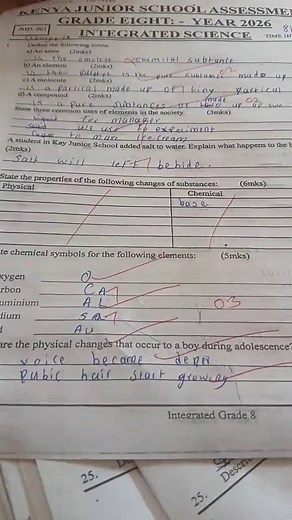 KENYA JUNIOR SCHOOL ASSESSMEN
GRADE EIGHT: - YEAR 2026
INTEGRATED SCIENCE
Define the following terms
a) An atom (2mks)
is the smallest chemical subtance
b) An element (2mks)
is the is the pure substance made up
c) A molecule (2mks)
is a partical made up of tiny partical
d) A compound (2mks)
is a pure substances of two
State three common uses of elements in the society. (3mks)
for manager
use to experiment
to
A student in Kay Junior School added salt to water. Explain what happens to the b
(2mks)
salt will left behide.
State the properties of the following changes of substances: (6mks)
Physical Chemical
base
te chemical symbols for the following elements: (5mks)
xygen O
rbon CA
uminium AL
dium SA
d AU
03
are the physical changes that occur to a boy during adolescence?
voice became deper
pubic hair start growing
Integrated Grade 8
25.
25.